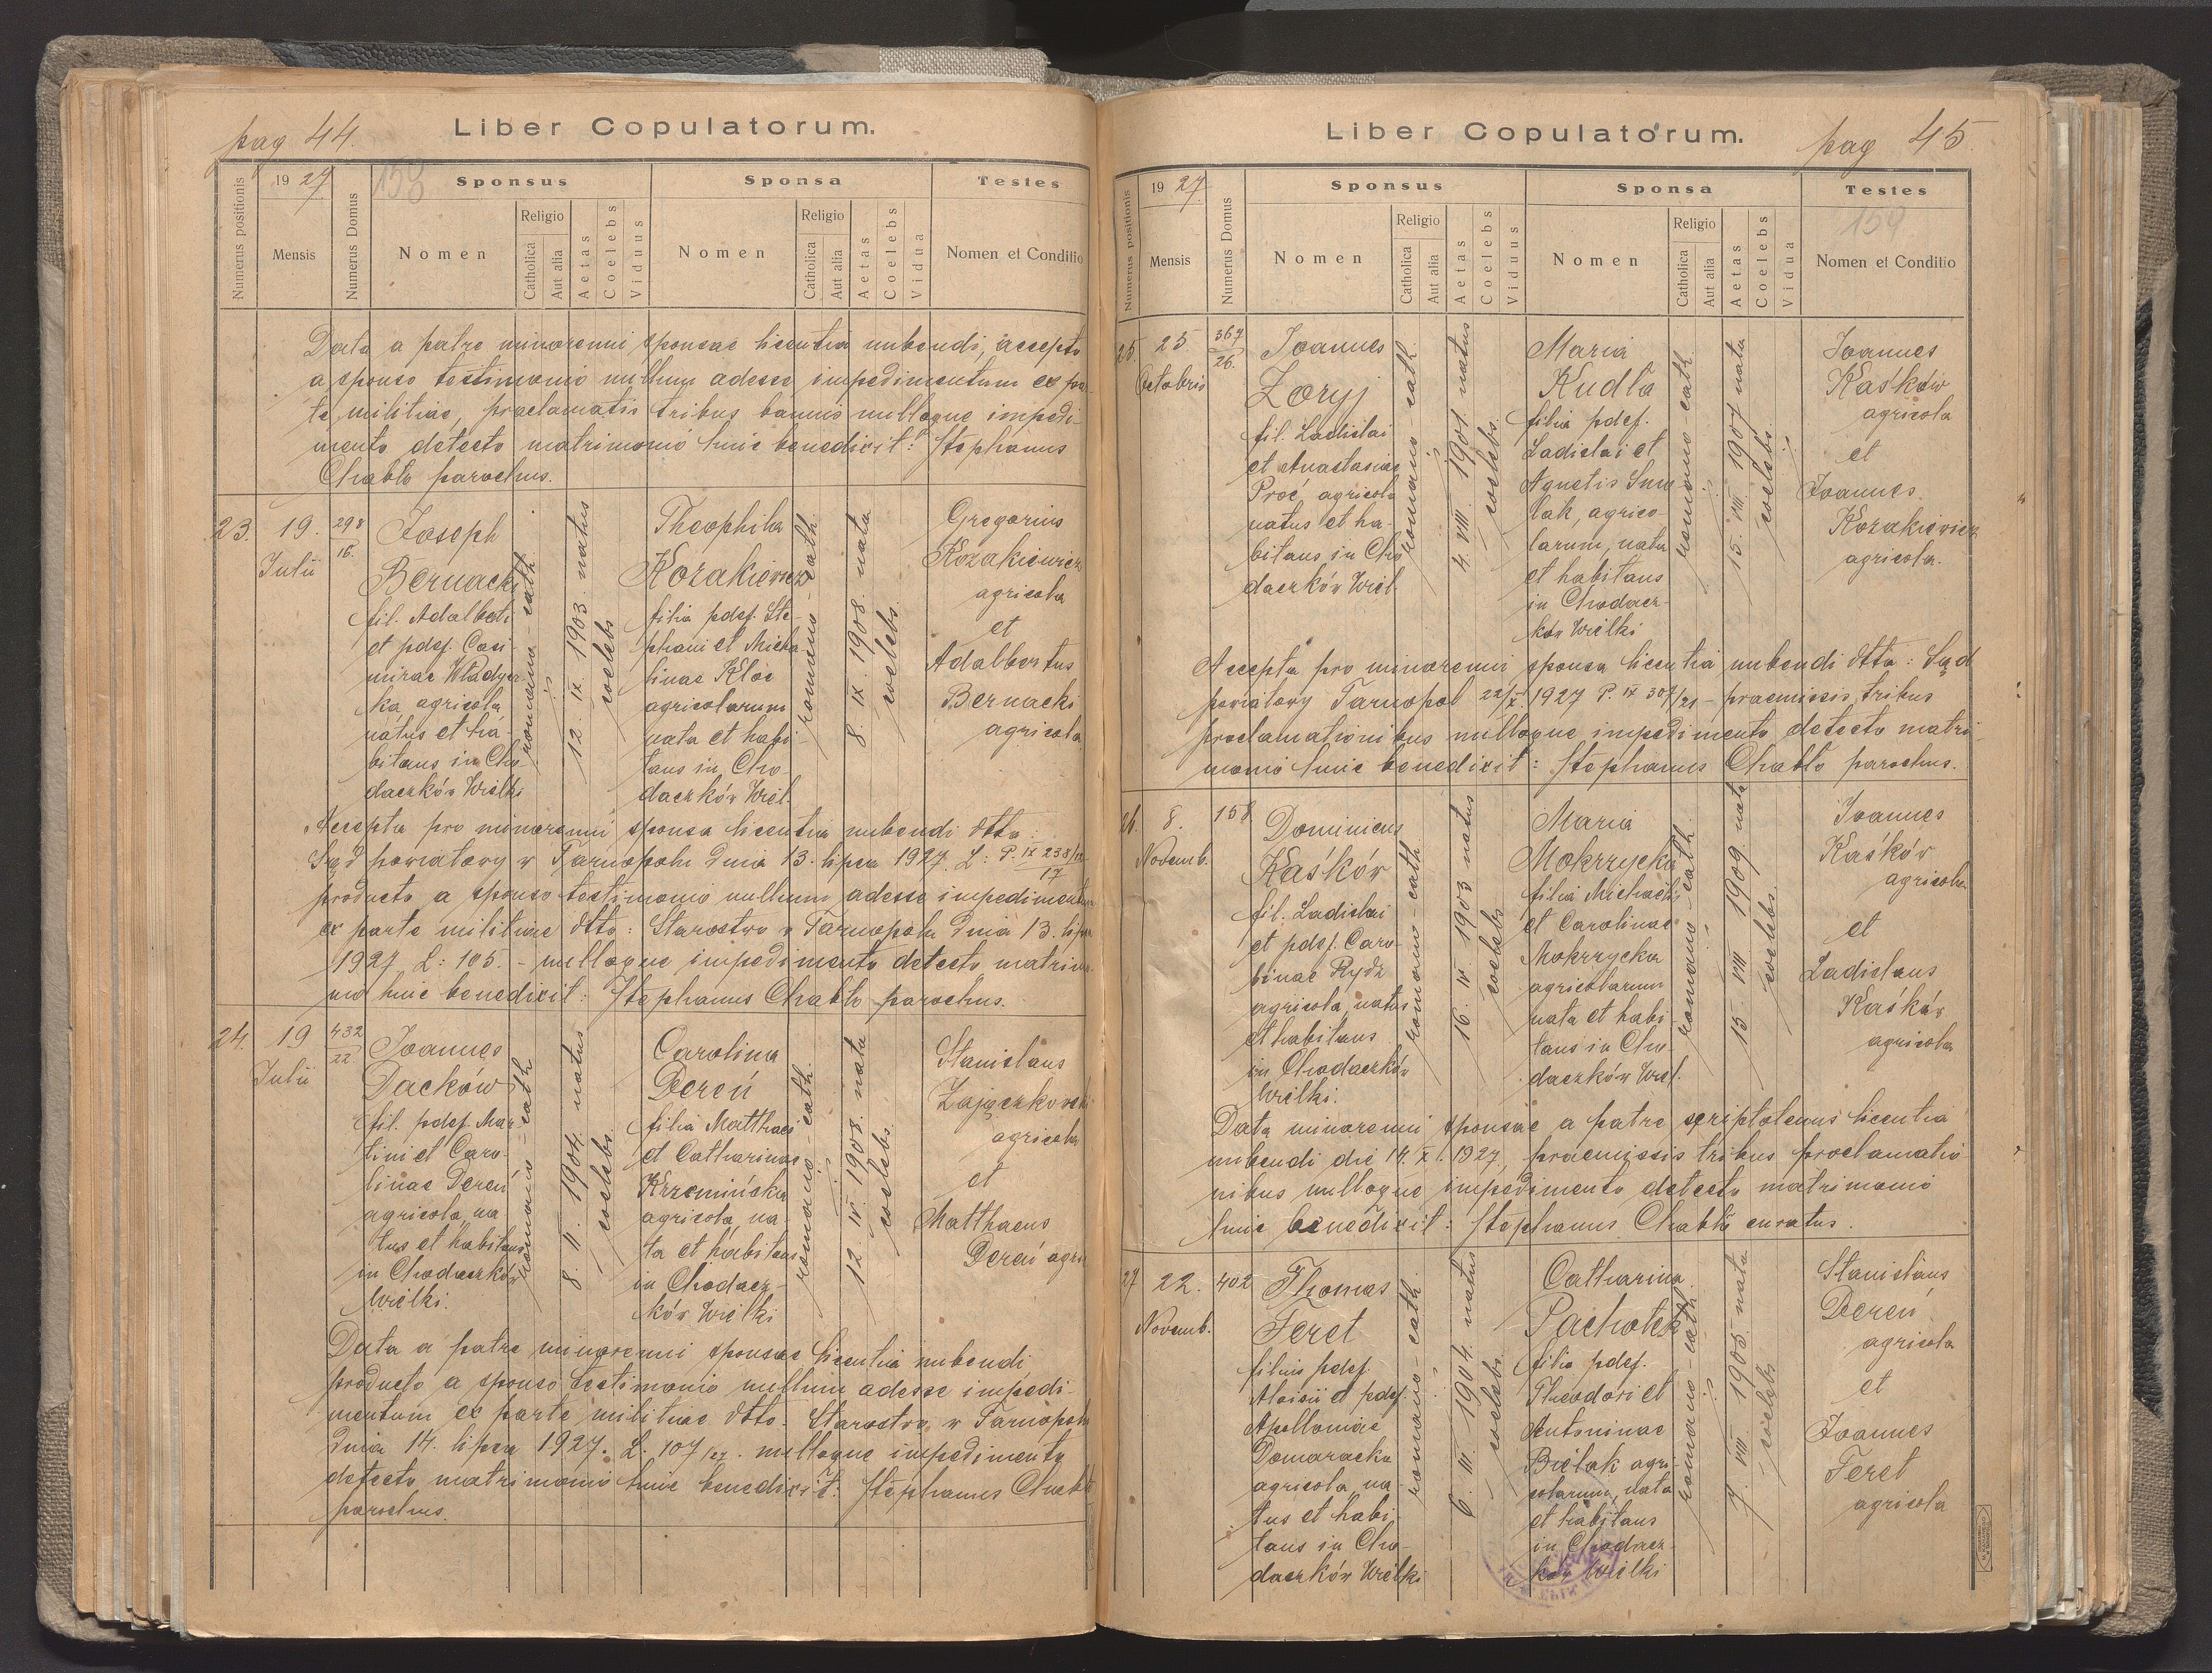 pag 44.
Liber Copulatorum.
158
Numerus positionis
19 27
Mensis
Numerus Domus
Sponsus
Nomen
Religio
Catholica
Aut alia
Aetas
Coelebs
Viduus
Sponsa
Nomen
Religio
Catholica
Aut alia
Aetas
Coelebs
Vidua
Testes
Nomen et Conditio
Data a patre minorenni sponsae licentia nubendi, accepto
a sponso testimonio nullum adesse impedimentum ex par-
te militiae, proclamatis tribus bannis nulloque impedi-
mento detecto matrimonio huic benedixit: Stephanus
Chabło parochus.
23.
19.
Julii
298
16.
Joseph
Bernacki
fil. Adalberti
et pdef. Casi-
mirae Władycz-
ka agricola
natus et ha-
bitans in Cho-
daczków Wielki
romano-cath.
12. IX. 1903. natus
coelebs
Theophila
Kozakiewicz
filia pdef. Ste-
phani et Micha-
linae Kloc
agricolarum
nata et habi-
tans in Cho-
daczków Wiel.
romano-cath.
8. IX. 1908. nata
coelebs.
Gregorius
Kozakiewicz
agricola
et
Adalbertus
Bernacki
agricola
Accepta pro minorenni sponsa licentia nubendi dtto:
Sąd powiatowy w Tarnopolu dnia 13. lipca 1927. L: P. IX 238/
17
producto a sponso testimonio nullum adesse impedimentum
ex parte militiae dtto: Starostwo w Tarnopolu dnia 13. lipca
1927 L: 105. - nulloque impedimento detecto matrimo-
nio huic benedixit: Stephanus Chabło parochus.
24.
19
Julii
432
22
Joannes
Dacków
fil. pdef. Mar-
tini et Caro-
linae Dereń
agricola, na-
tus et habitans
in Chodaczków
Wielki.
romano-cath.
8. II. 1904. natus
coelebs.
Carolina
Dereń
filia Matthaei
et Catharinae
Krzemińska
agricola, na-
ta et habitans
in Chodacz-
ków Wielki
romano-cath.
12. IV. 1908. nata
coelebs.
Stanislaus
Zajączkowski
agricola
et
Matthaeus
Dereń agri
Data a patre minorenni sponsae licentia nubendi
producto a sponso testimonio nullum adesse impedi-
mentum ex parte militiae dtto. Starostwo w Tarnopolu
dnia 14. lipca 1927. L. 107/27. nulloque impedimento
detecto matrimonio huic benedixit: Stephanus Chabło
parochus.
Liber Copulatorum.
pag 45
Numerus positionis
19 27
Mensis
Numerus Domus
Sponsus
Nomen
Religio
Catholica
Aut alia
Aetas
Coelebs
Viduus
Sponsa
Nomen
Religio
Catholica
Aut alia
Aetas
Coelebs
Vidua
Testes
159
Nomen et Conditio
25.
25
Octobris
367
26.
Joannes
Zoryj
fil. Ladislai
et Anastasiae
Proć, agricola
natus et ha-
bitans in Cho
daczków Wiel
romano-cath.
4. VIII. 1901. natus
coelebs.
Maria
Kudła
filia pdef.
Ladislai et
Agnetis Smo
lak, agrico-
larum, nata
et habitans
in Chodacz-
ków Wielki
romano cath.
15. VIII. 1907 nata
coelebs.
Joannes
Kaśków
agricola
et
Joannes
Kozakiewicz
agricola.
Accepta pro minorenni sponsa licentia nubendi dtto: Sąd
powiatowy Tarnopol 22/X. 1927 P. IX 307/21 - praemissis tribus
proclamationibus nulloque impedimento detecto matri-
monio huic benedixit: Stephanus Chabło parochus.
26.
8.
Novemb.
158
Dominicus
Kaśków
fil. Ladislai
et pdef. Caro-
linae Rydz
agricola, natus
et habitans
in Chodaczków
Wielki.
romano-cath
16. IV. 1903 natus
coelebs
Maria
Mokrzycka
filia Michaelis
et Carolinae
Mokrzycka
agricolarum
nata et habi-
tans in Cho-
daczków Wiel.
romano-cath.
15. VIII 1909. nata
coelebs.
Joannes
Kaśków
agricola
et
Ladislaus
Kaśków
agricola
Data minorenni sponsae a patre scriptotenus licentia
nubendi die 14. X. 1927, praemissis tribus proclamatio
nibus nulloque impedimento detecto matrimonio
huic benedixit: Stephanus Chabło curatus.
27
22.
Novemb.
402
Thomas
Feret
filius pdef.
Aloisii et pdef.
Apolloniae
Domaracka
agricola, na-
tus et habi-
tans in Cho-
daczków Wielki
romano-cath.
6. III. 1904. natus
coelebs
Catharina
Pachołek
filia pdef.
Theodori et
Antoninae
Bielak agri-
colarum, nata
et habitans
in Chodacz-
ków Wielki
romano-cath.
7. VIII. 1905 nata
coelebs
Stanislaus
Dereń
agricola
et
Joannes
Feret
agricola